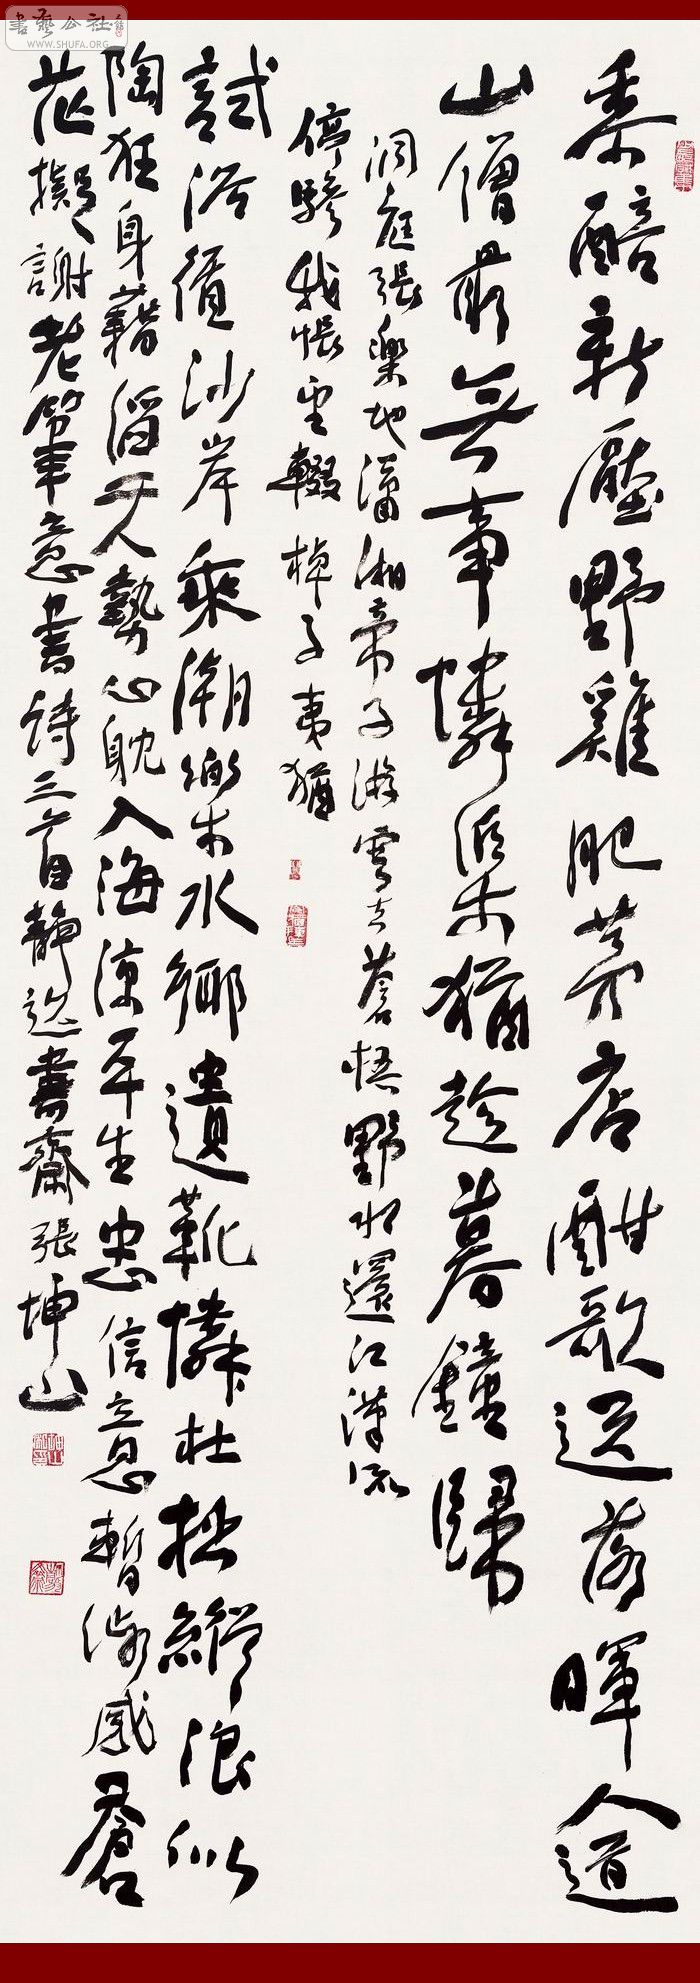 黍醅新壓野雞肥茅店酣歌送落暉人道
山僧最無事憐渠猶趁暮鐘歸
洞庭張樂地瀟湘帝子游雲去蒼梧野水還江漢流
停驂我悵望輟棹子夷猶
試浴循沙岸乘潮樂水鄉遺靴憐杜拙縱浪似
陶狂身藉滔天勢心耽入海涼平生忠信意暫感蒼
茫擬謝老筆意書詩三首靜逸書齋張坤山
書藝公社
WWW.SHUFA.ORG